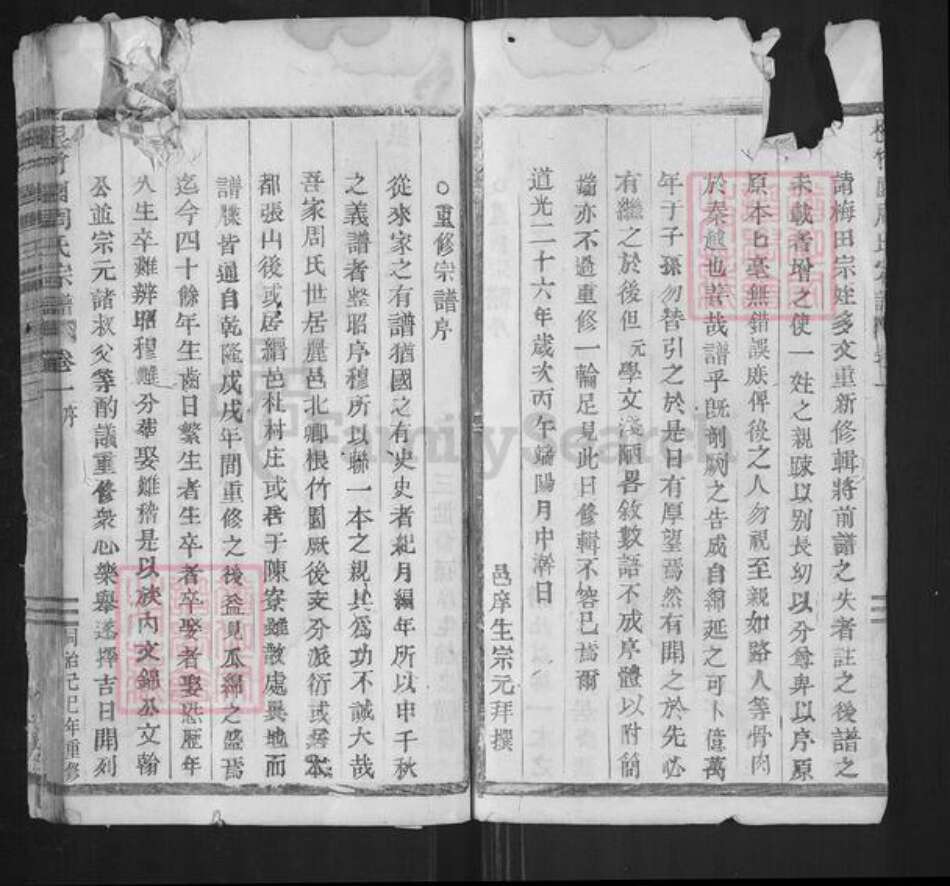 請梅田宗姓多文重新修輯將前譜之失者註之後譜之
未載者增之使一姓之親踈以別長幼以分尊卑以序原
原本本毫無錯誤庶俾後之人勿視至親如路人等骨肉
於秦越也善哉譜乎既剞劂之告成自綿延之可卜億萬
年于子孫勿替引之於是日有厚望焉然有開之於先必
有繼之於後但元學文淺陋畧敘數語不成序體以附簡
端亦不過重修一輪足見此日修輯不容已焉爾
道光二十六年歲次丙午端陽月中澣日
邑庠生宗元拜撰
○重修宗譜序
從來家之有譜猶國之有史史者紀月編年所以申千秋
之義譜者整昭序穆所以聯一本之親其為功不誠大哉
吾家周氏世居麗邑北鄉根竹園厥後支分派衍或居本
都張山後或居縉邑杜村庄或居于陳寮雖散處異地而
譜牒皆通自乾隆戊戌年間重修之後益見瓜綿之盛焉
迄今四十餘年生齒日繁生者生卒者卒娶者娶恐歷年
久生卒難辨昭穆難分葬娶難稽是以族內文錦公文翰
公並宗元諸叔父等酌議重修衆心樂舉遂擇吉日開列
根竹園周氏宗譜 卷一 序
同治己巳年重修
FamilySearch